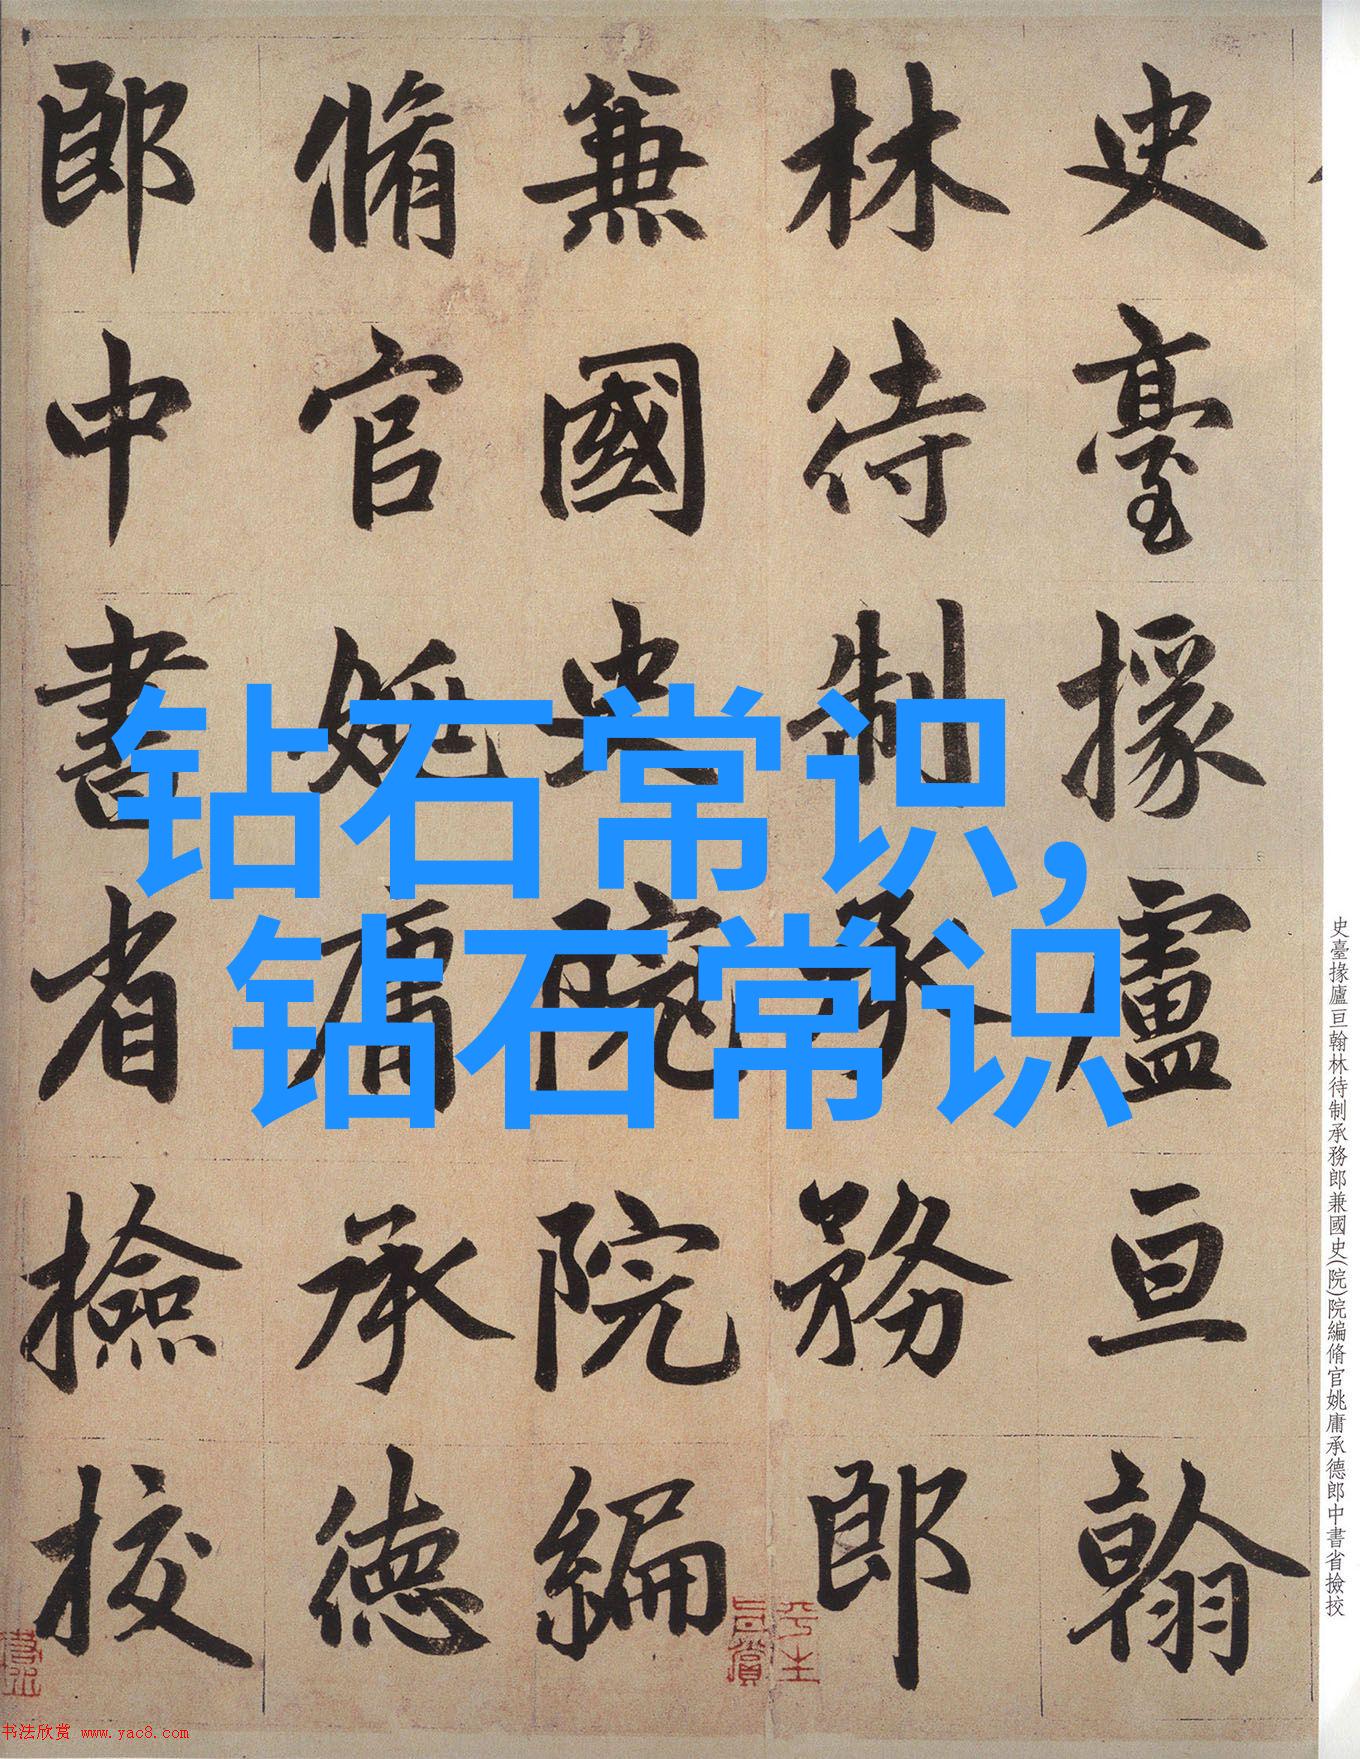 钻石常识,
钻石常识
史臺掾盧亘翰
林待制承務郎
兼國史院院編
脩官姚庸承德
郎中書省撿挍
史臺掾廬亘翰林待制承務郎兼國史(院)院編脩官姚庸承德郎中書省撿挍
平生
真賞
书法欣赏 www.yac8.com